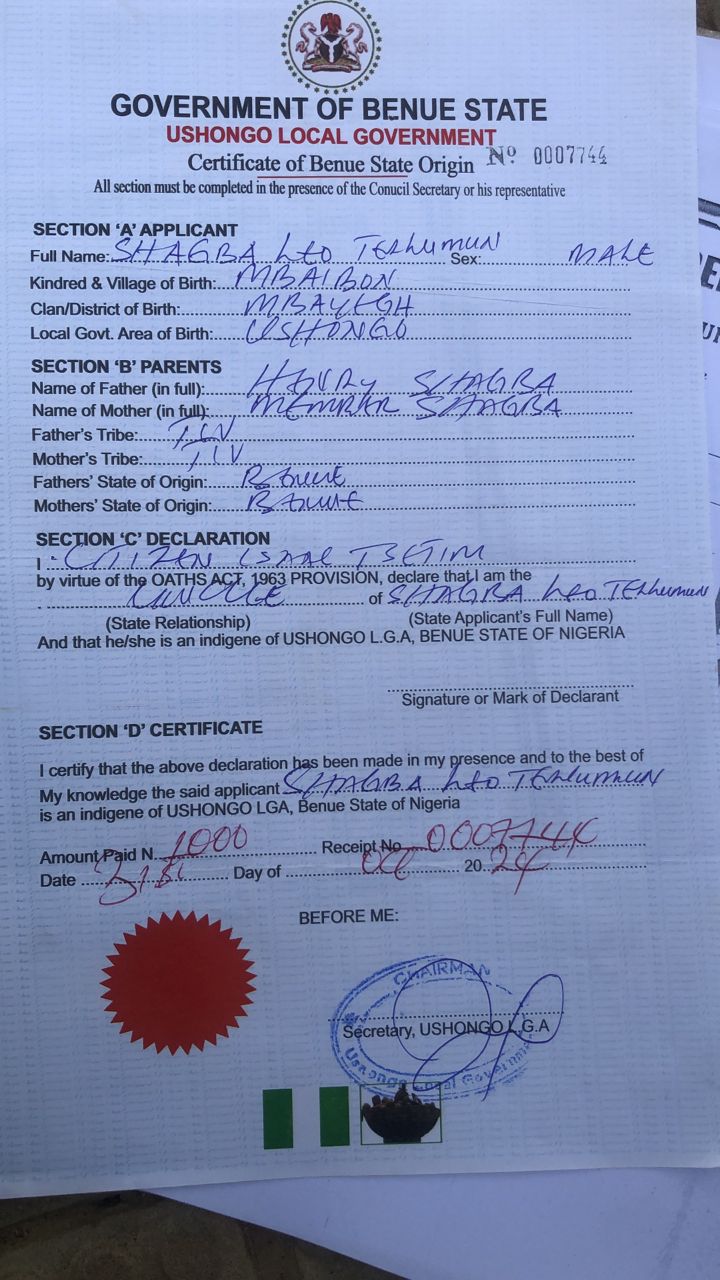 GOVERNMENT OF BENUE STATE
USHONGO LOCAL GOVERNMENT
Certificate of Benue State Origin Nº 0007744
All section must be completed in the presence of the Conucil Secretary or his representative
SECTION 'A' APPLICANT
Full Name: SHAGBA LEO TERHUMUN Sex: MALE
Kindred & Village of Birth: MBAIBON
Clan/District of Birth: MBAYEGH
Local Govt. Area of Birth: USHONGO
SECTION 'B' PARENTS
Name of Father (in full): HENRY SHAGBA
Name of Mother (in full): SHAGBA
Father's Tribe: TIV
Mother's Tribe: TIV
Fathers' State of Origin: Benue
Mothers' State of Origin: Benue
SECTION 'C' DECLARATION
I CITIZEN ISAAC
by virtue of the OATHS ACT, 1963 PROVISION, declare that I am the
UNCLE of SHAGBA LEO TERHUMUN
(State Relationship) (State Applicant's Full Name)
And that he/she is an indigene of USHONGO L.G.A, BENUE STATE OF NIGERIA
Signature or Mark of Declarant
SECTION 'D' CERTIFICATE
I certify that the above declaration has been made in my presence and to the best of
My knowledge the said applicant SHAGBA LEO TERHUMUN
is an indigene of USHONGO LGA, Benue State of Nigeria
Amount Paid N 1000 Receipt No 0007744
Date 31st Day of Oct 20 24
BEFORE ME:
CHAIRMAN
Secretary, USHONGO L.G.A
Ushongo Local Government